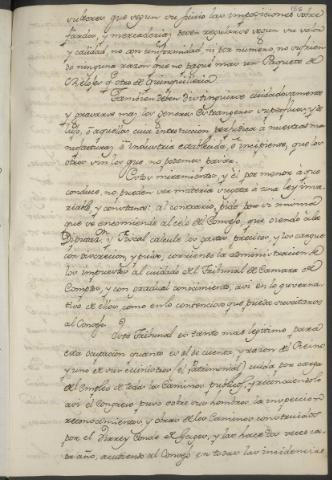 que segun su juicio las imposiciones sobre
frutos, y mercaderias deven regularse segun su valor
y calidad, no con uniformidad ni por numero, no sufrien
do ninguna razon que no pague mas un Paquete de
Reloxes q.e otro de Quinquilleria.
Tambien deben distinguirse cuidadosamente
y gravarse mas los generos Extrangeros superfluos, y de
lujo, ò aquellos cuia introduccion perjudica à nuestras ma
nufacturas, ò Industria establecida, ò incipiente, que los
otros sin los que no podemos pasar.
Estos miramientos, y el por menor à que
conduce, no pueden ser materia sugeta à una ley inva
riable, y constante: al contrario, pide por si misma
que se encomiende al celo de Consejo, que oiendo à la
Diputac.n y Fiscal calcule los gastos precisos, y los cargue
con discrecion, y pulso, corriendo la administracion de
los impuestos al cuidado del Tribunal de Camara de
Comptos, y con gradual conocimiento, asi en lo guberna
tivo de ellos, como en lo contencioso que pueda suscitarse
al Consejo.
Este Tribunal es tanto mas legitimo para
esta Diputacion quanto es el de cuenta, y razon del Reino
y uno de sus ministros (el Patrimonial) cuida por cargo
de Empleo de todos los Caminos publicos, y reconociendolo
asi el Congreso puso sobre sus hombros la inspeccion
reconocimientos, y obras de los Caminos construidos
por el Virrey Conde de Gages, y las hace tres veces ca
da año, acudiendo al Consejo en todas las incidencias